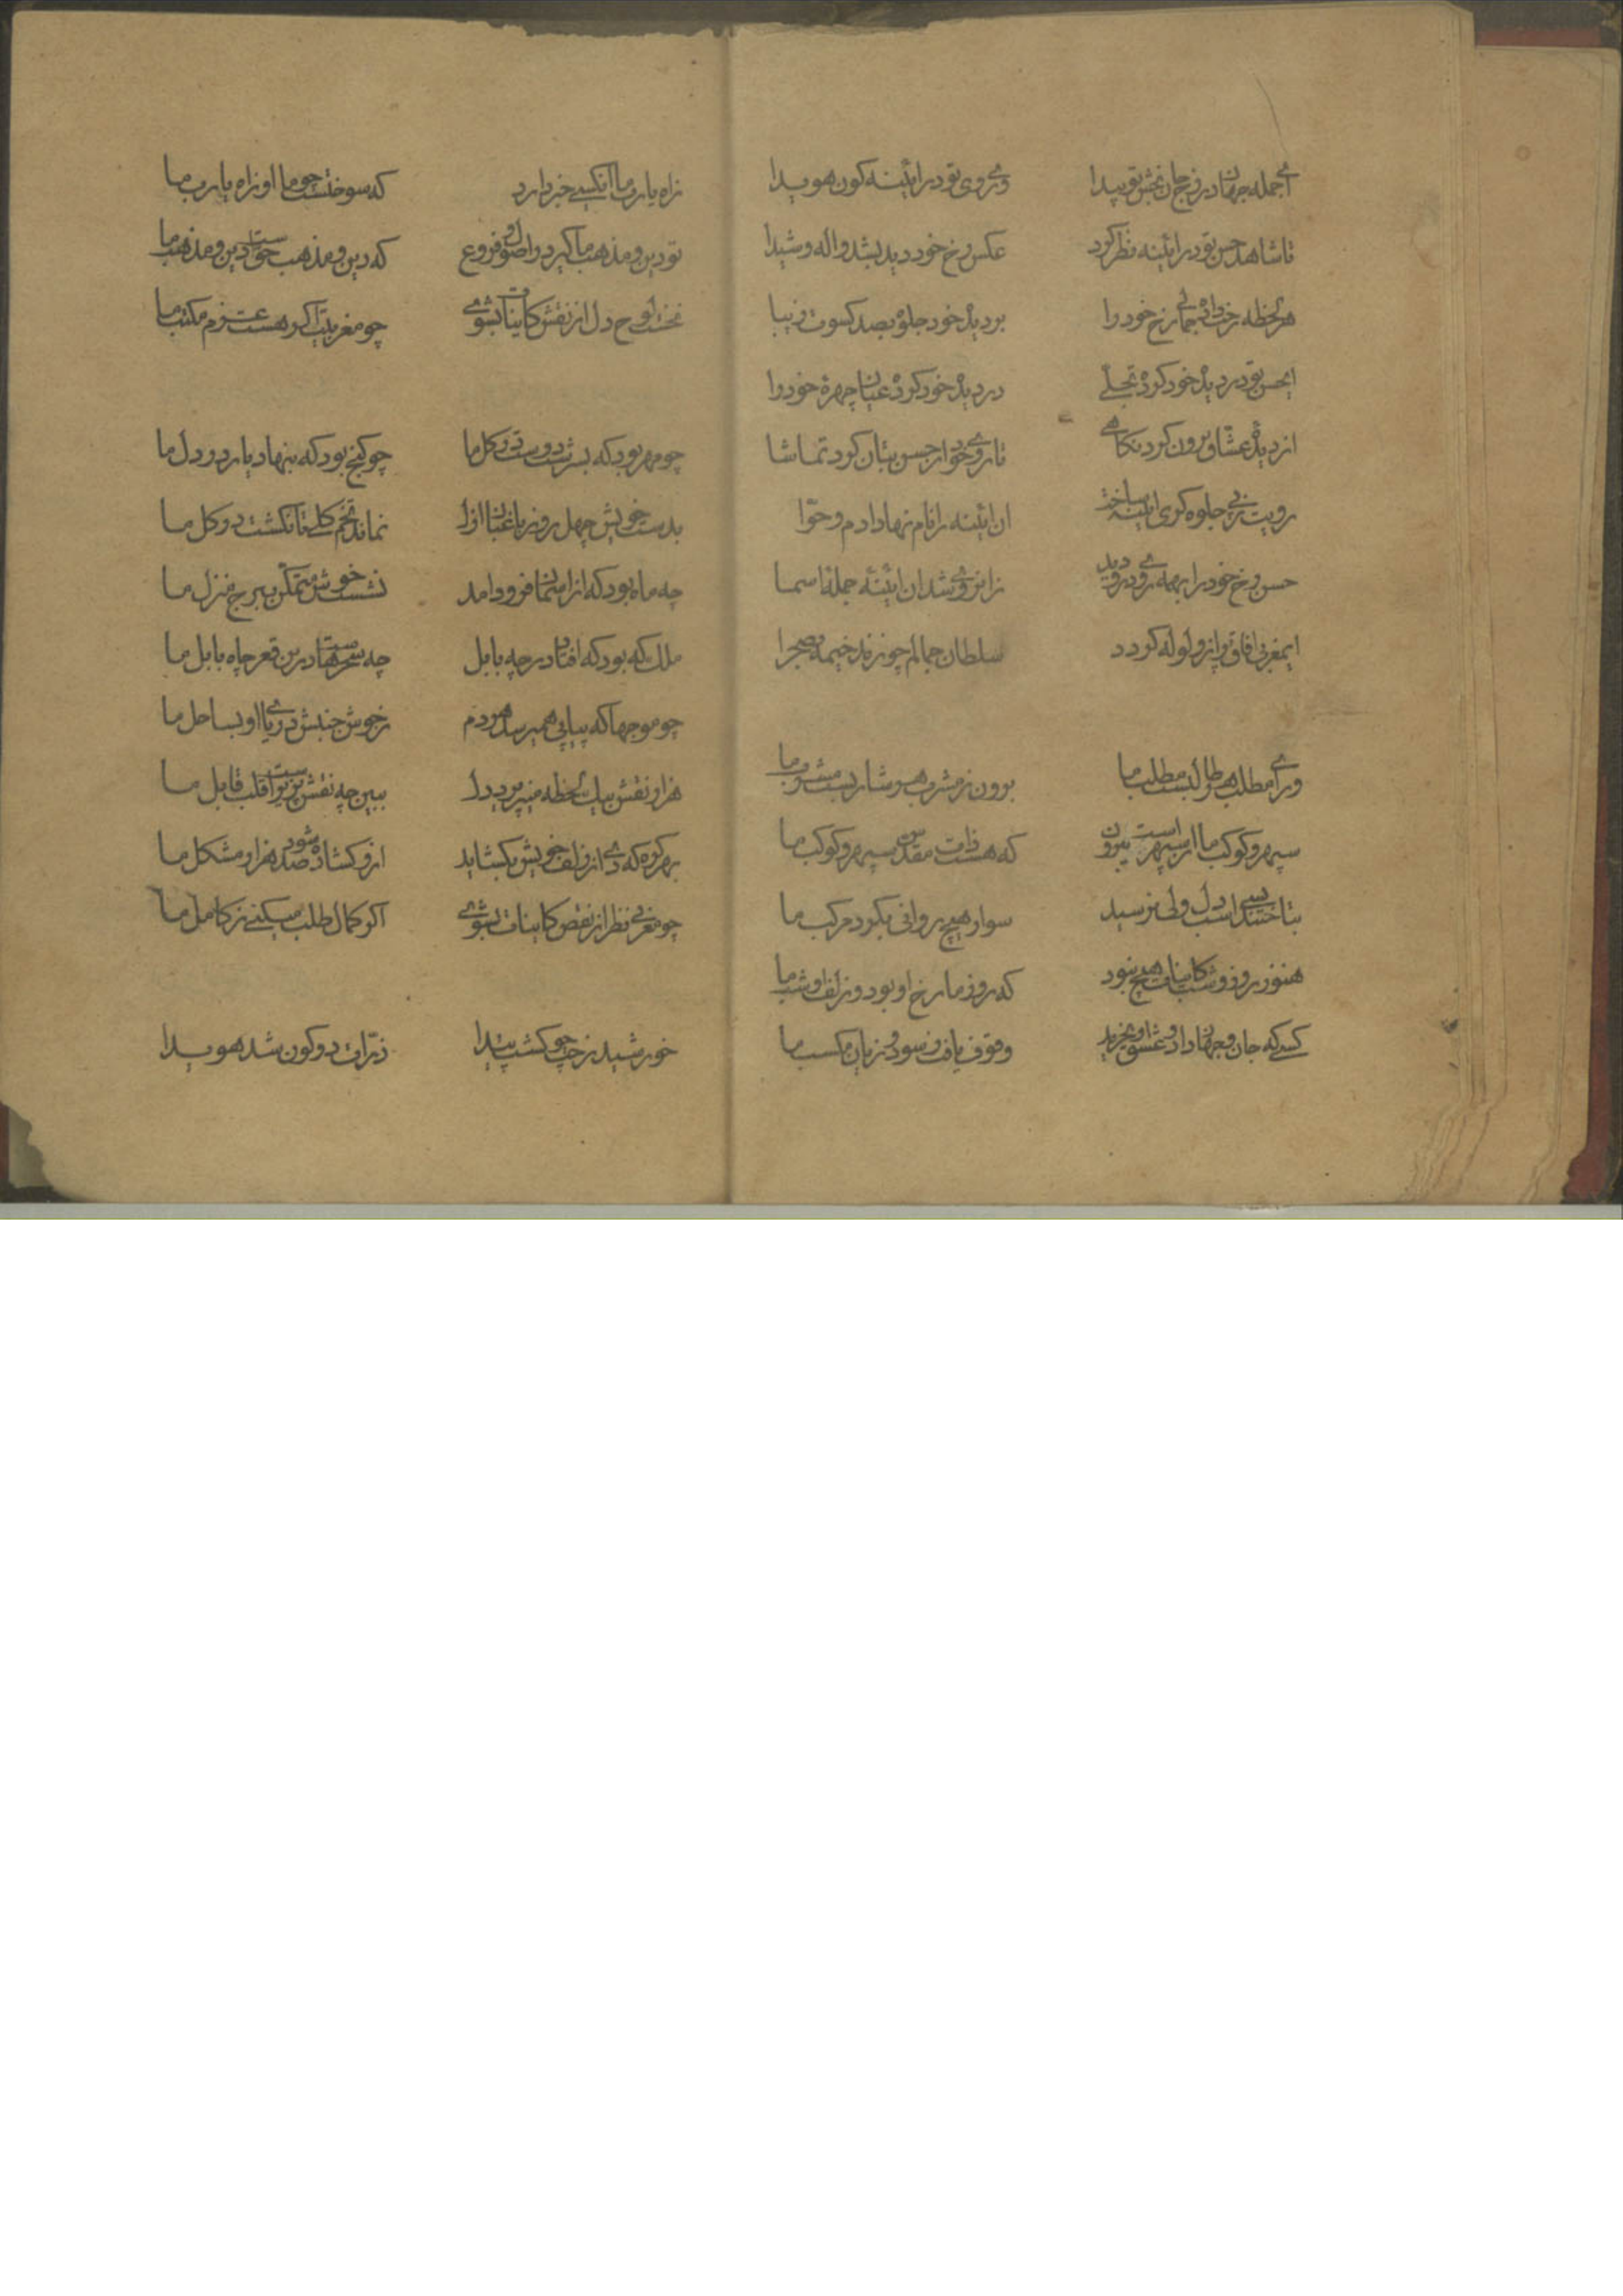 ای جمله جهان در رخ جان بخش تو پیدا وی روی تو در آئینه کون هویدا
تا شاهد حسن تو در آئینه نظر کرد عکس رخ خود دید بشد واله و شیدا
هر لحظه رخت داد جمال رخ خود را بر دیدهٔ خود جلوه بصد کسوت زیبا
از دیدهٔ عشاق برون کرد نگاهی تا روی خود از حسن بتان کرد تماشا
رویت ز پی جلوه گری آینه ساخت آن آئینه را نام نهاد آدم و حوا
حسن رخ خود را بهمه روی درو دید زانروی شد آن آئینه جمله اسما
ای مغربی آفاق پر از ولوله گردد سلطان جمالم چو زند خیمه بصحرا
ورای مطلب هر طالبست مطلب ما برون ز مشرب هر شاربست مشرب ما
سپهر و کوکب ما از سپهرست بیرون که هست ذات مقدس سپهر و کوکب ما
بتاختند بسی اسب دل ولی نرسید سوار هیچ روانی بگرد مرکب ما
هنوز روز و شب کاینات هیچ نبود که روز ما رخ او بود و زلف او شب ما
کسی که جان و جهان داد و عشق او بخرید وقوف یافت ز سود و زیان مکسب ما
ز آه یا رب ما آنکسی خبر دارد که سوختست چو ما او ز آه یا رب ما
تو دین و مذهب ما گیر در اصول و فروع که دین و مذهب حقست دین و مذهب ما
نخست لوح دل از نقش کاینات بشوی چو مغربیت اگر هست عزم مکتب ما
چو مهر بود که بسرشت دوست در گل ما چو گنج بود که بنهاد یار در دل ما
بدست خویش چهل روز باغبان ازل نماند تخم گلی تا نکشت در گل ما
چه ماه بود که از آسمان فرود آمد نشست خوش متمکن ببرج منزل ما
ملک که بود که افتاد در چه بابل چه سحرهاست درین قعر چاه بابل ما
چو موجها که پیاپی همیرسد هر دم ز جوش جنبش دریای او بساحل ما
هزار نقش بیک لحظه میپذیرد دل ببین چه نقش پذیرست قلب قابل ما
بهر گره که دمی از زلف خویش بگشاید ازو گشاده شود صد هزار مشکل ما
چو مغربی نظر از نقص کاینات بشوی اگر کمال طلب میکنی ز کامل ما
خورشید رخت چو گشت پیدا ذرات دو کون شد هویدا